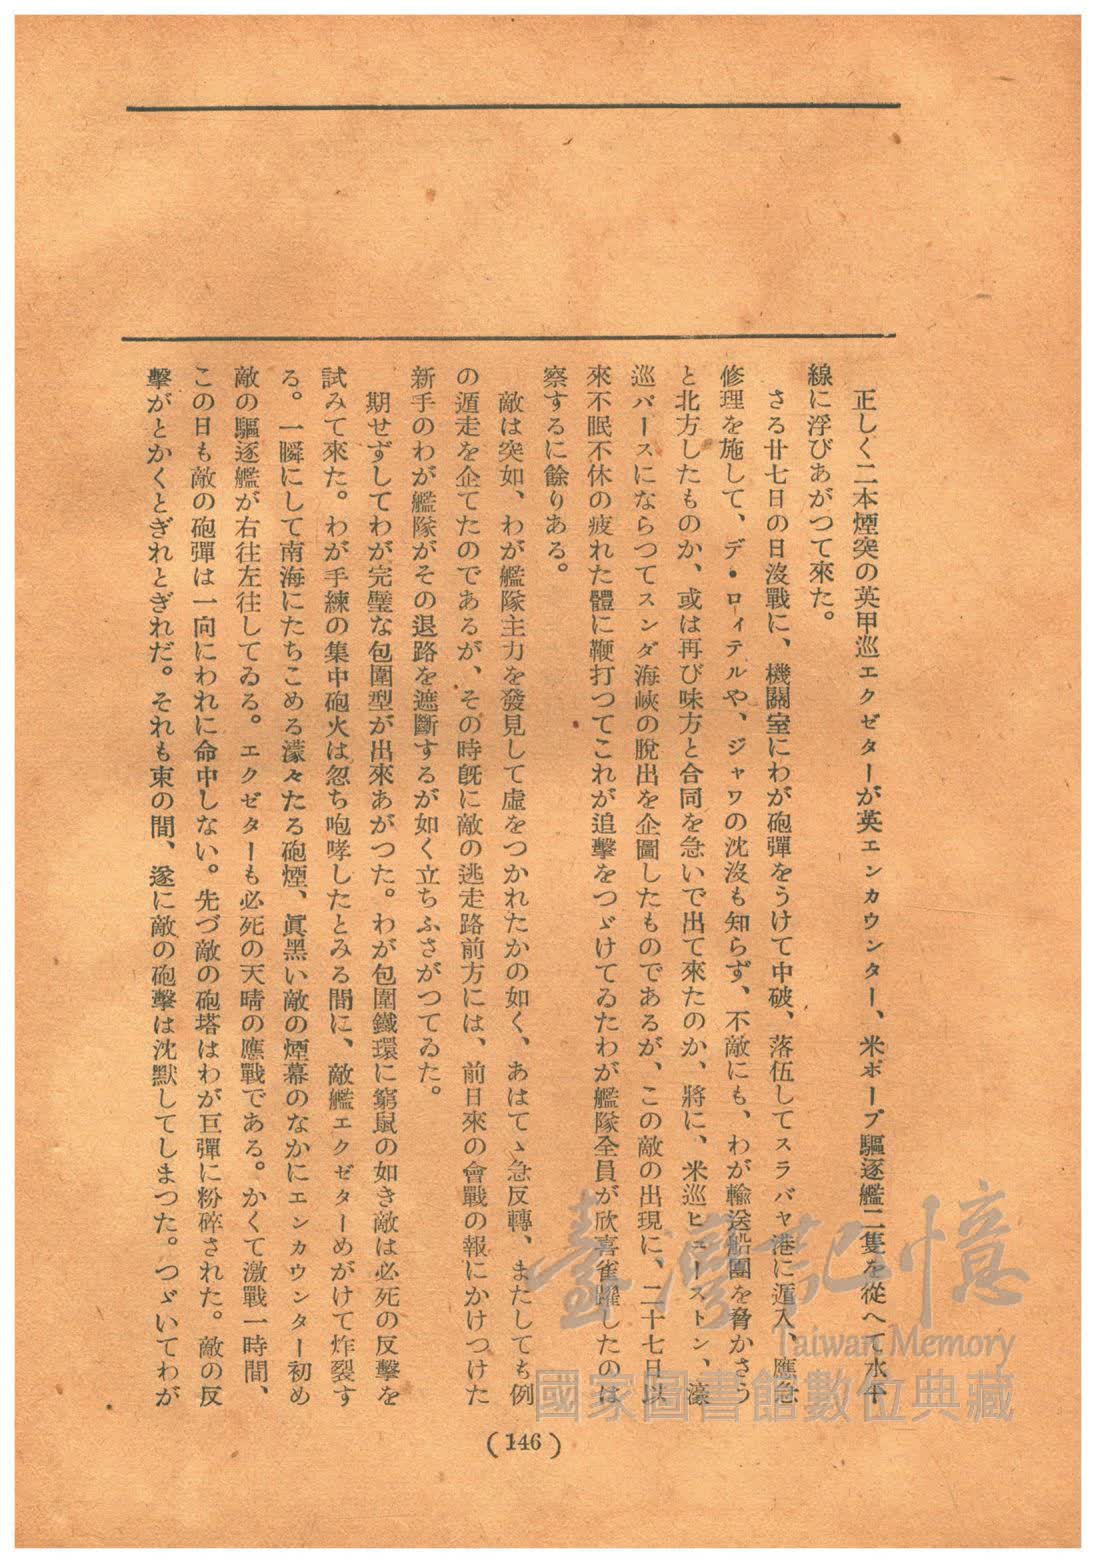 正しく二本煙突の英甲巡エクゼターが英エンカウンター、米ポープ驅逐艦二隻を從へて水平
線に浮びあがつて來た。
さる廿七日の日沒戰に、機關室にわが砲彈をうけて中破、落伍してスラバヤ港に遁入、應急
修理を施して、デ・ロイテルや、ジャワの沈沒も知らず、不敵にも、わが輸送船團を脅かさう
と北方したものか、或は再び味方と合同を急いで出て來たのか、將に、米巡ヒューストン、濠
巡パースにならつてスンダ海峽の脫出を企圖したものであるが、この敵の出現に、二十七日以
來不眠不休の疲れた體に鞭打つてこれが追擊をつゞけてゐたわが艦隊全員が欣喜雀躍したのは
察するに餘りある。
敵は突如、わが艦隊主力を發見して虛をつかれたかの如く、あはてゝ急反轉、またしても例
の遁走を企てたのであるが、その時旣に敵の逃走路前方には、前日來の會戰の報にかけつけた
新手のわが艦隊がその退路を遮斷するが如く立ちふさがつてゐた。
期せずしてわが完璧な包圍型が出來あがつた。わが包圍鐵環に窮鼠の如き敵は必死の反擊を
試みて來た。わが手練の集中砲火は忽ち咆哮したとみる間に、敵艦エクゼターめがけて炸裂す
る。一瞬にして南海にたちこめる濛々たる砲煙、眞黑い敵の煙幕のなかにエンカウンター初め
敵の驅逐艦が右往左往してゐる。エクゼターも必死の天晴の應戰である。かくて激戰一時間、
この日も敵の砲彈は一向にわれに命中しない。先づ敵の砲塔はわが巨彈に粉碎された。敵の反
擊がとかくとぎれとぎれだ。それも束の間、遂に敵の砲擊は沈默してしまつた。つゞいてわが
(146)
臺灣記憶
Taiwan Memory
國家圖書館數位典藏